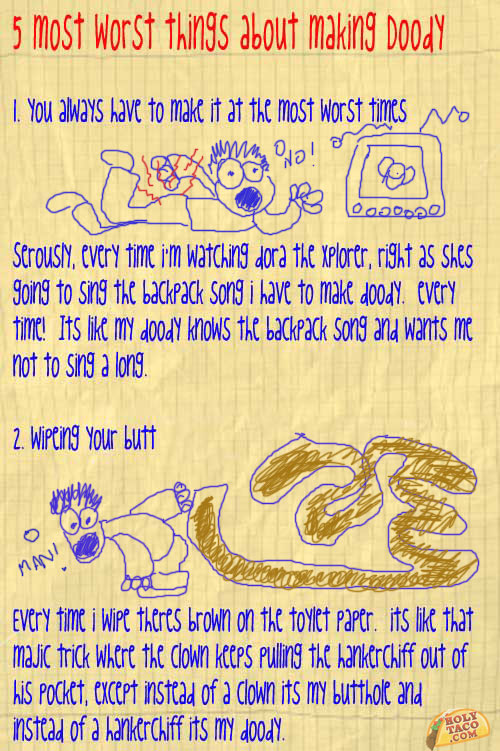 5 Most Worst Things about Making Doody
1. You always have to make it at the most worst times
O NO!
Serously, every time i'm watching dora the xplorer, right as shes
going to sing the backpack song i have to make doody. every
time! Its like my doody knows the backpack song and wants me
not to sing a long.
2. Wipeing your butt
O MAN!
Every time i wipe theres brown on the toylet paper. its like that
majic trick where the clown keeps pulling the hankerchiff out of
his pocket, except instead of a clown its my butthole and
instead of a hankerchiff its my doody.
HOLY
TACO
.COM